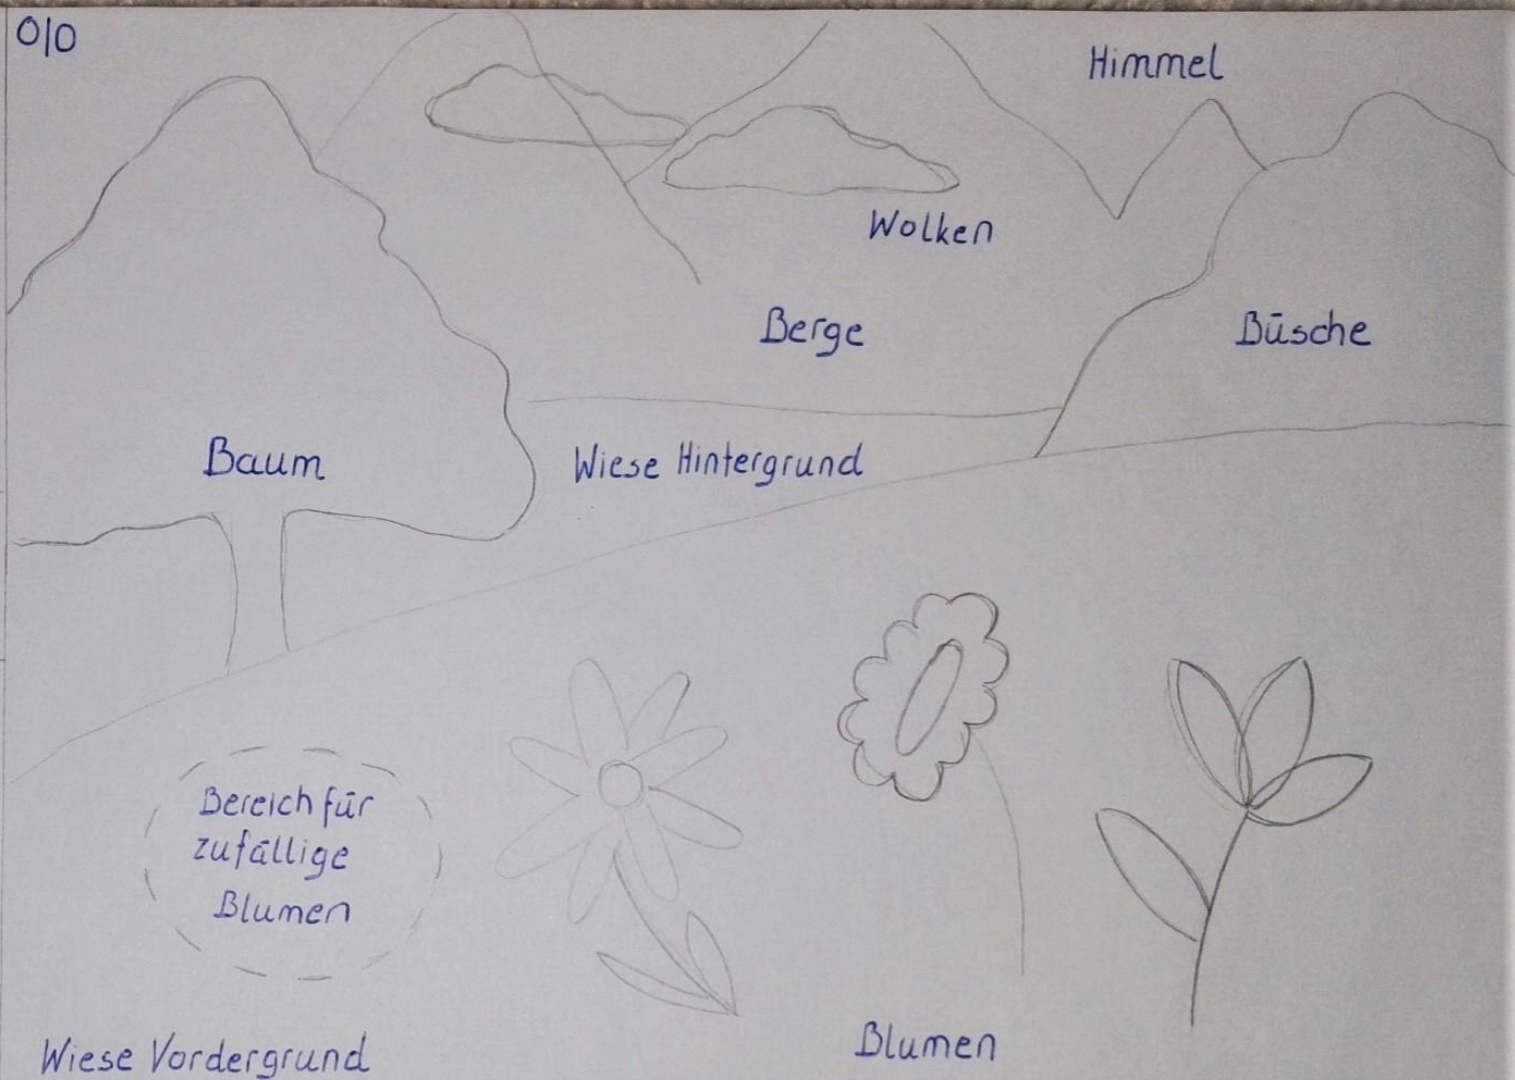 0|0
Himmel
Wolken
Berge
Büsche
Baum
Wiese Hintergrund
Bereich für
zufällige
Blumen
Blumen
Wiese Vordergrund